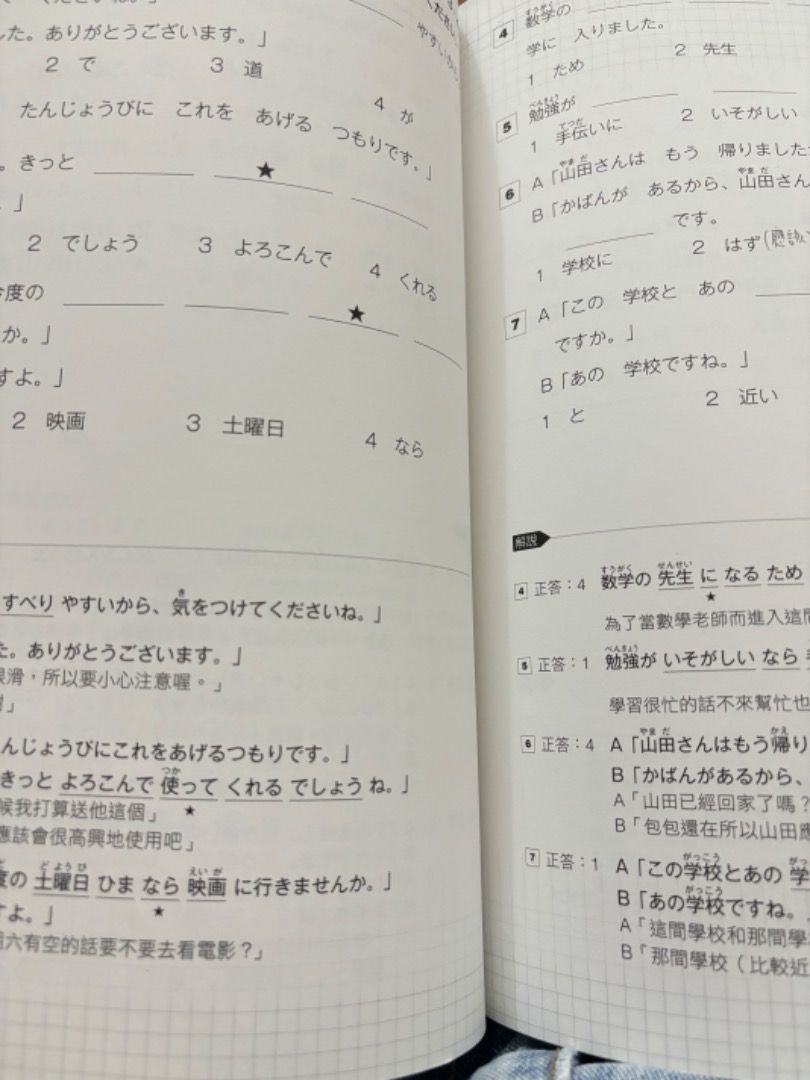 くださいね。」
やすいから
した。ありがとうございます。」
2 で 3 道 4 が
たんじょうびに これを あげる つもりです。」
。きっと ★
。」
2 でしょう 3 よろこんで 4 くれる
今度の ★
か。」
すよ。」
2 映画 3 土曜日 4 なら
すべり やすいから、気をつけてくださいね。」
き
た。ありがとうございます。」
滑，所以要小心注意喔。」
」
んじょうびにこれをあげるつもりです。」
きっと よろこんで 使って くれる でしょう ね。」
つか
候我打算送他這個」 ★
應該會很高興地使用吧」
度の 土曜日 ひま なら 映画 に行きませんか。」
どようび えいが
★
すよ。」
六有空的話要不要去看電影？」
4 数学の
すうがく
学に 入りました。
1 ため 2 先生
5 勉強が
べんきょう
1 手伝いに 2 いそがしい
てつだ
6 A「山田さんは もう 帰りました
やまだ
B「かばんが あるから、山田さん
やまだ
です。
1 学校に 2 はず(應該
7 A「この 学校と あの
ですか。」
B「あの 学校ですね。」
1 と 2 近い
解說
4 正答：4 数学の 先生 に なる ため
すうがく せんせい
★
為了當數學老師而進入這間
5 正答：1 勉強が いそがしい なら
べんきょう
學習很忙的話不來幫忙也
6 正答：4 A「山田さんはもう帰り
やまだ かえ
B「かばんがあるから、
A「山田已經回家了嗎？
B「包包還在所以山田應
7 正答：1 A「この学校とあの 学
がっこう がっ
B「あの学校ですね。
がっこう
A「這間學校和那間學
B「那間學校（比較近